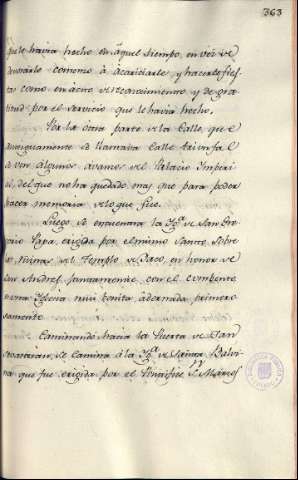 363
que le havia hecho en aquel tiempo, en vez de
devorarle comenzó à acariciarle, y hacerle fies-
tas como en acto de reconocimiento y de gra-
titud por el servicio que le havia hecho.
Por la otra parte de la Calle, que
antiguamente se llamava Calle triunfal
se ven algunos avanzos del Palacio Imperia-
, del que no ha quedado mas que para poder
hacer memoria de lo que fue.
Luego se encuentra la Ygª de San Gre-
gorio Papa, erigida por el mismo Santo sobre
las Ruinas del Templo de Baco, en honor de
San Andres juntamente con el convento
Yglesia mui bonita, adornada primoro-
samente.
Caminando hacia la Puerta de San
Sebastian, se camina à la Ygª de Santa Balvi-
na que fue erigida por el Pontifice Sn Marcos